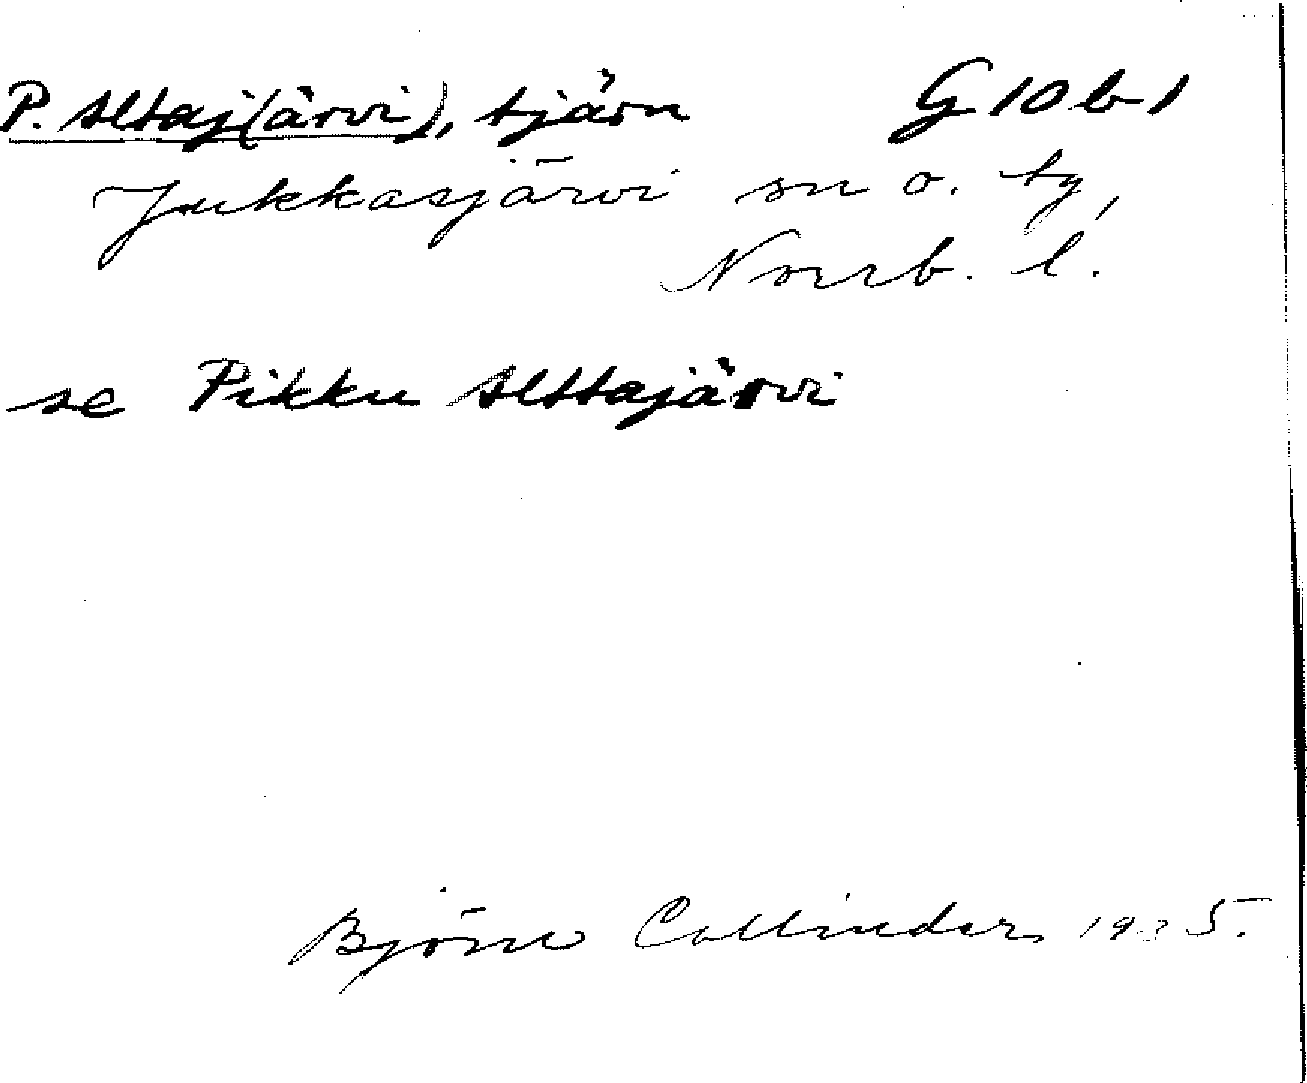 P. Altaj(ärvi), tjärn G 10 b 1
Jukkasjärvi sn o. tg,
Norrb. l.
se Pikku Alttajärvi
Björn Collinder 1935.